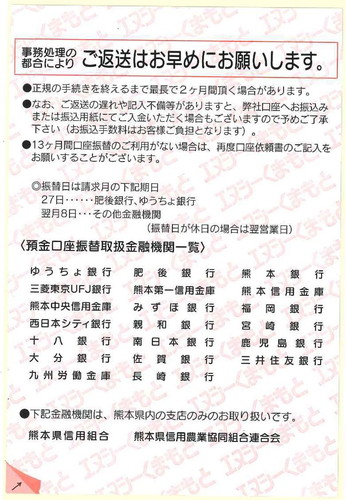 事務処理の
都合により ご返送はお早めにお願いします。
●正規の手続きを終えるまで最長で2ヶ月間頂く場合があります。
●なお、ご返送の遅れや記入不備等がありますと、弊社口座へお振込み
または振込用紙にてご入金いただく場合もございますので予めご了承
下さい（お振込手数料はお客様ご負担となります）。
●13ヶ月間口座振替のご利用がない場合は、再度口座依頼書のご記入を
お願いすることがございます。
◎振替日は請求月の下記期日
27日‥‥‥肥後銀行、ゆうちょ銀行
翌月8日‥‥その他金融機関
（振替日が休日の場合は翌営業日）
〈預金口座振替取扱金融機関一覧〉
ゆうちょ銀行 肥後銀行 熊本銀行
三菱東京UFJ銀行 熊本第一信用金庫 熊本信用金庫
熊本中央信用金庫 みずほ銀行 福岡銀行
西日本シティ銀行 親和銀行 宮崎銀行
十八銀行 南日本銀行 鹿児島銀行
大分銀行 佐賀銀行 三井住友銀行
九州労働金庫 長崎銀行
●下記金融機関は、熊本県内の支店のみのお取り扱いです。
熊本県信用組合 熊本県信用農業協同組合連合会